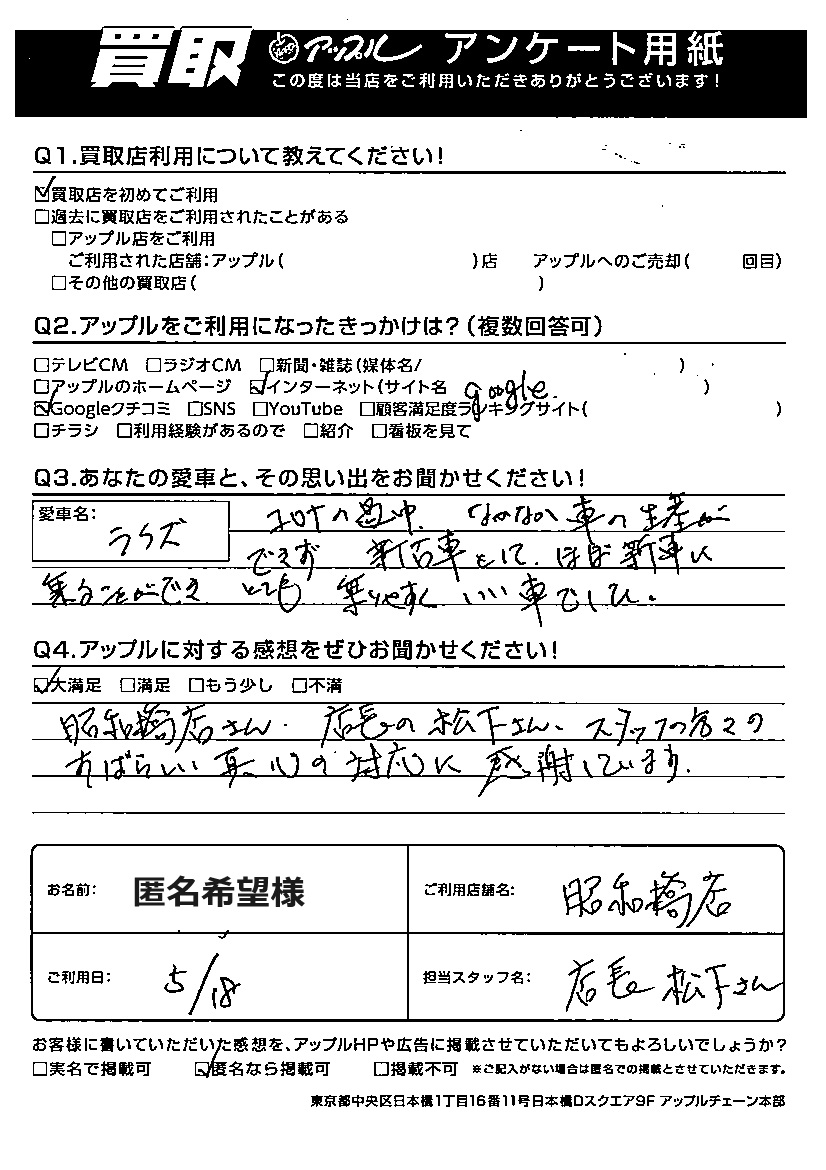 買取 アップル アンケート用紙
この度は当店をご利用いただきありがとうございます!
Q1.買取店利用について教えてください!
☑買取店を初めてご利用
□過去に買取店をご利用されたことがある
□アップル店をご利用
ご利用された店舗:アップル( )店 アップルへのご売却( 回目)
□その他の買取店( )
Q2.アップルをご利用になったきっかけは?(複数回答可)
□テレビCM □ラジオCM □新聞・雑誌(媒体名/ )
□アップルのホームページ ☑インターネット(サイト名 google )
☑Googleクチコミ □SNS □YouTube □顧客満足度ランキングサイト( )
□チラシ □利用経験があるので □紹介 □看板を見て
Q3.あなたの愛車と、その思い出をお聞かせください!
愛車名: ライズ
コロナの中、なかなか車の生産が
できず 新古車として、ほぼ新車に
乗ることができ とても 乗りやすく いい車でした。
Q4.アップルに対する感想をぜひお聞かせください!
☑大満足 □満足 □もう少し □不満
昭和橋店さん、店長の松下さん、スタッフの方々の
すばらしい真心の対応に感謝しています。
お名前: 匿名希望様
ご利用店舗名: 昭和橋店
ご利用日: 5/18
担当スタッフ名: 店長 松下さん
お客様に書いていただいた感想を、アップルHPや広告に掲載させていただいてもよろしいでしょうか?
□実名で掲載可 ☑匿名なら掲載可 □掲載不可 ※ご記入がない場合は匿名での掲載とさせていただきます。
東京都中央区日本橋1丁目16番11号日本橋Dスクエア9F アップルチェーン本部